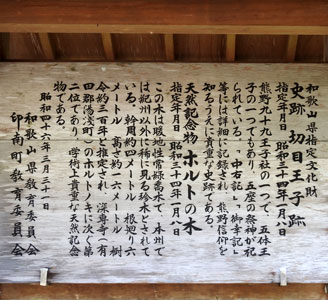 和歌山県指定文化財
史跡 切目王子跡
指定年月日 昭和三十四年一月八日
熊野九十九王子社の一つで、五体王
子の一つでもあり、五座の祭神が祀
られていて、「中右記」、「御幸記」
等には詳細に記され、熊野信仰を
知るうえに貴重な史跡である。
天然記念物 ホルトの木
指定年月日 昭和三十四年一月八日
この木は暖地性常緑高木で、本州で
は紀州以外に稀に見る珍木とされて
いる。幹周約四メートル 根廻り六
メートル 高さ約一六メートル 樹
令約三百年と推定され、深専寺（有
田郡湯浅町）のホルトノキに次ぐ第
二位であり、学術上貴重な天然記念
物である。
昭和四十六年三月三十一日
和歌山県教育委員会
印南町教育委員会